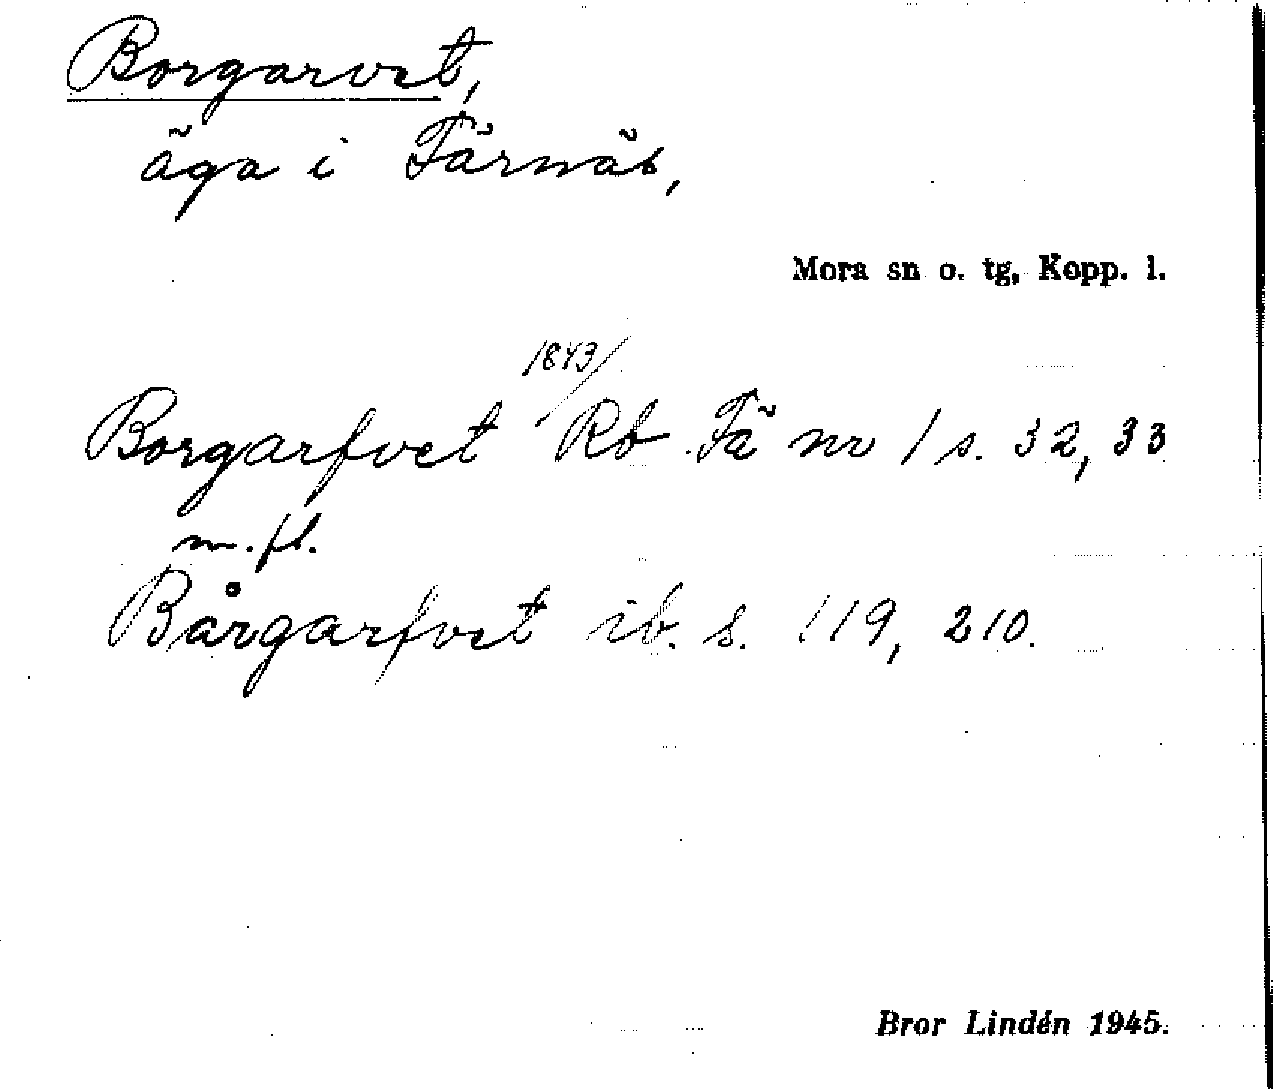 Borgarvet,
äga i Färnäs,
Mora sn o. tg, Kopp. l.
1843/
Borgarfvet Rb Fä nr 1 s. 32, 33
m.fl.
Bårgarfvet ib. s. 119, 210.
Bror Lindén 1945.